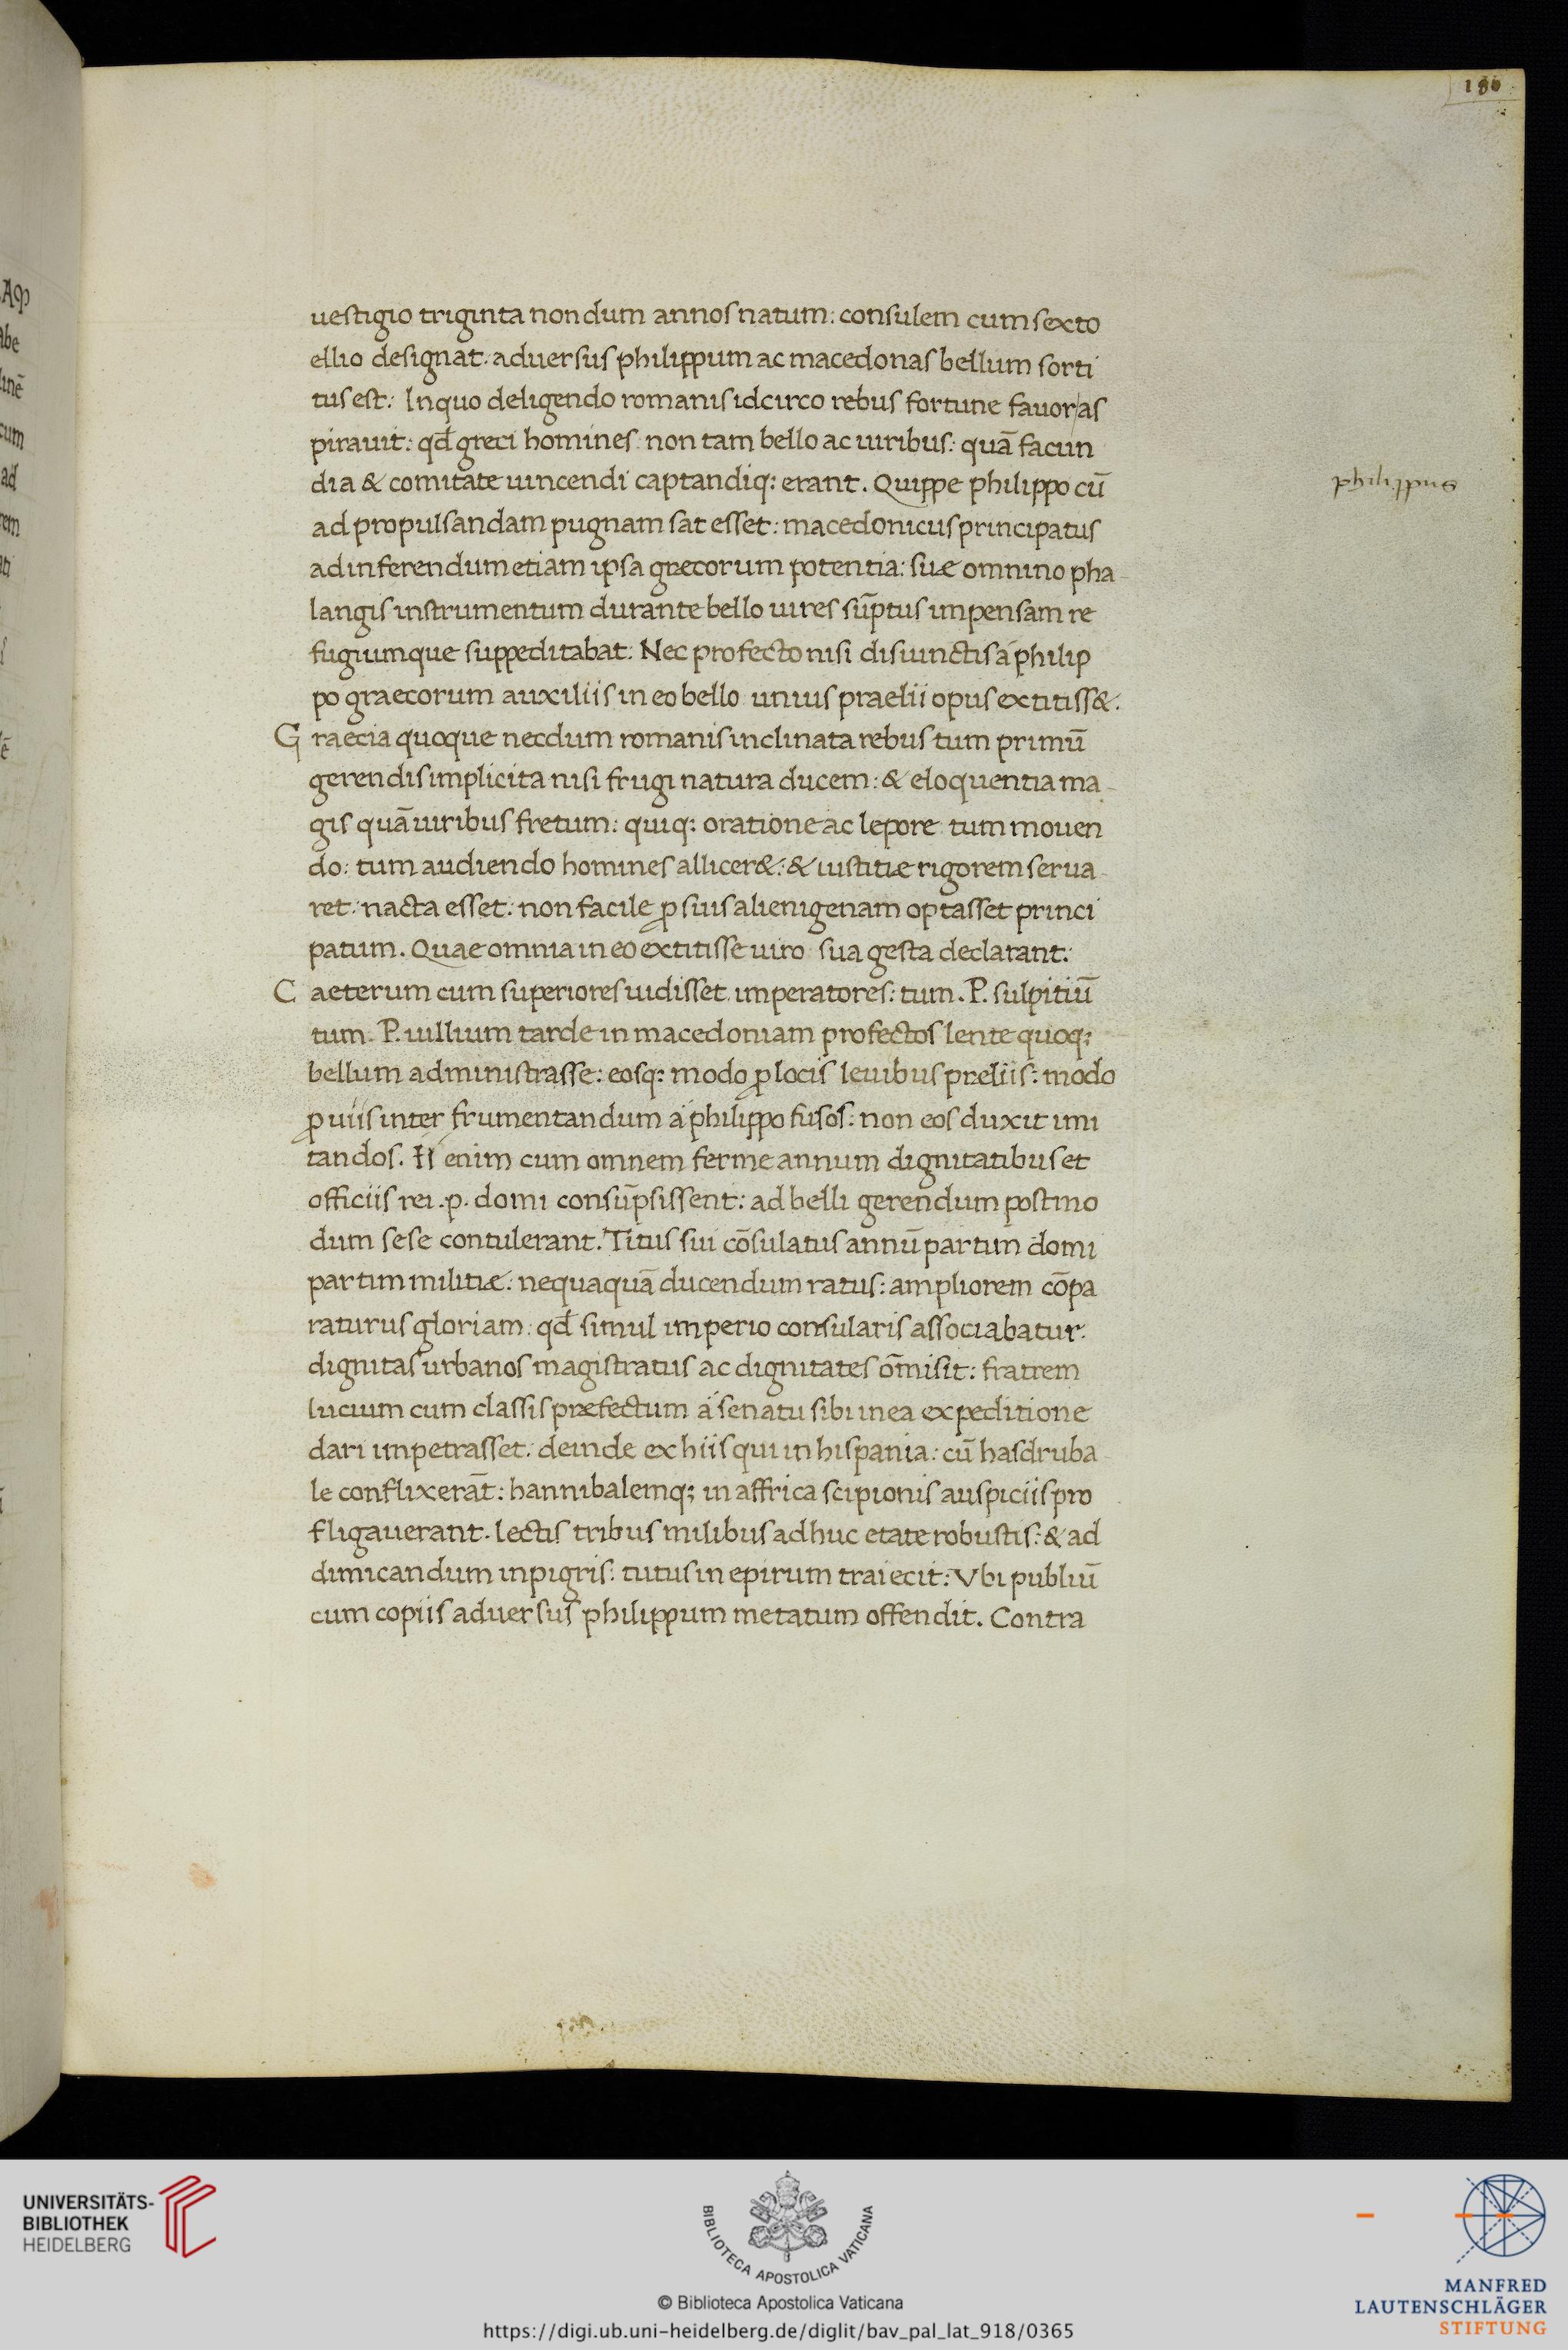 180
uestigio triginta nondum annos natum: consulem cum sexto
ellio designat. aduersus philippum ac macedonas bellum sorti
tus est: In quo deligendo romanis idcirco rebus fortune fauor as
pirauit: qđ greci homines non tam bello ac uiribus: quā facun
dia & comitate uincendi captandiq; erant. Quippe philippo cū
ad propulsandam pugnam sat esset: macedonicus principatus
ad inferendum etiam ipsa grecorum potentia: suæ omnino pha-
langis instrumentum durante bello uires sūptus impensam re
fugiumque suppeditabat: Nec profecto nisi disiunctis a philip
po graecorum auxiliis in eo bello unius praelii opus extitiss&.
Graecia quoque necdum romanis inclinata rebus tum primū
gerendis implicita nisi frugi natura ducem: & eloquentia ma-
gis quā uiribus fretum: quiq; oratione ac lepore tum mouen
do: tum audiendo homines allicer&: & iustitiæ rigorem serua-
ret: nacta esset: non facile ꝓ suis alienigenam optasset princi
patum. Quae omnia in eo extitisse uiro sua gesta declarant:
Caeterum cum superiores uidisset imperatores: tum .P. sulpitiū
tum. P. uillium tarde in macedoniam profectos lente quoq;
bellum administrasse: eosq; modo ꝓ locis leuibus preliis: modo
ꝓ uiis inter frumentandum a philippo fusos: non eos duxit imi
tandos. Ii enim cum omnem ferme annum dignitatibus et
officiis rei .p. domi consūpsissent: ad belli gerendum postmo
dum sese contulerant. Titus sui cōsulatus annū partim domi
partim militiæ: nequaquā ducendum ratus: ampliorem cōpa
raturus gloriam: qđ simul imperio consularis associabatur:
dignitas urbanos magistratus ac dignitates ōmisit: fratrem
lucium cum classis præfectum a senatu sibi in ea expeditione
dari impetrasset: deinde ex hiis qui in hispania: cū hasdruba-
le conflixerāt: hannibalemq; in affrica scipionis auspiciis pro
fligauerant. lectis tribus milibus adhuc etate robustis: & ad
dimicandum inpigris: tutus in epirum traiecit: Vbi publiū
cum copiis aduersus philippum metatum offendit. Contra
UNIVERSITÄTS-
BIBLIOTHEK
HEIDELBERG
BIBLIOTECA APOSTOLICA VATICANA
© Biblioteca Apostolica Vaticana
https://digi.ub.uni-heidelberg.de/diglit/bav_pal_lat_918/0365
MANFRED
LAUTENSCHLÄGER
STIFTUNG